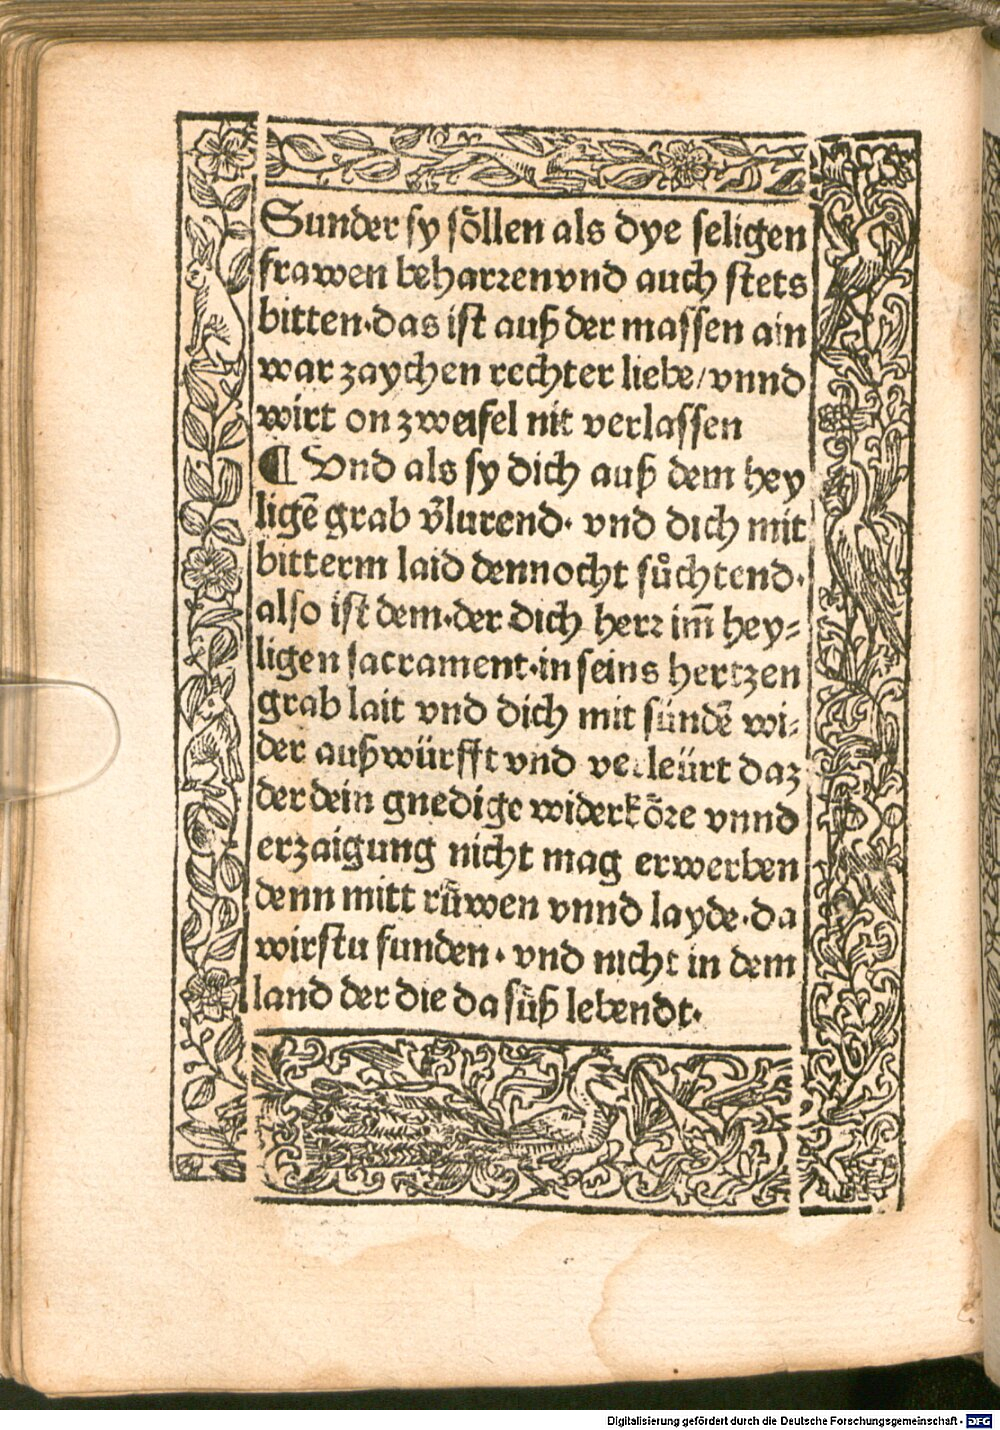 Sunder sy soͤllen als dye seligen
frawen beharꝛen vnd auch stets
bitten·das ist auß der massen ain
war zaychen rechter liebe/vnnd
wirt on zweifel nit verlassen
¶ Vnd als sy dich auß dem hey
ligē grab v̄lurend· vnd dich mit
bitterm laid dennocht suͦchtend·
also ist dem·der dich herꝛ im̄ hey⸗
ligen sacrament·in seins hertzen
grab lait vnd dich mit sündē wi⸗
der außwürfft vnd verleürt daz
der dein gnedige widerkoͤꝛe vnnd
erzaigung nicht mag erwerben
denn mitt rüwen vnnd layde·da
wirstu funden· vnd nicht in dem
land der die da süß lebendt·
Digitalisierung gefördert durch die Deutsche Forschungsgemeinschaft - DFG